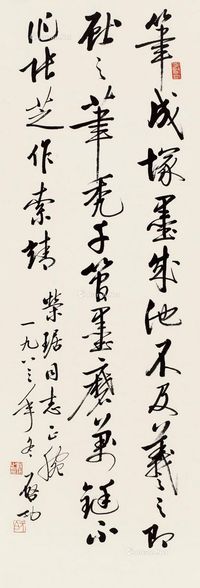 筆成塚墨成池不及羲之即
献之筆禿千管墨磨萬鋌不
作張芝作索靖
榮琚同志正腕
一九八三年冬 啓功